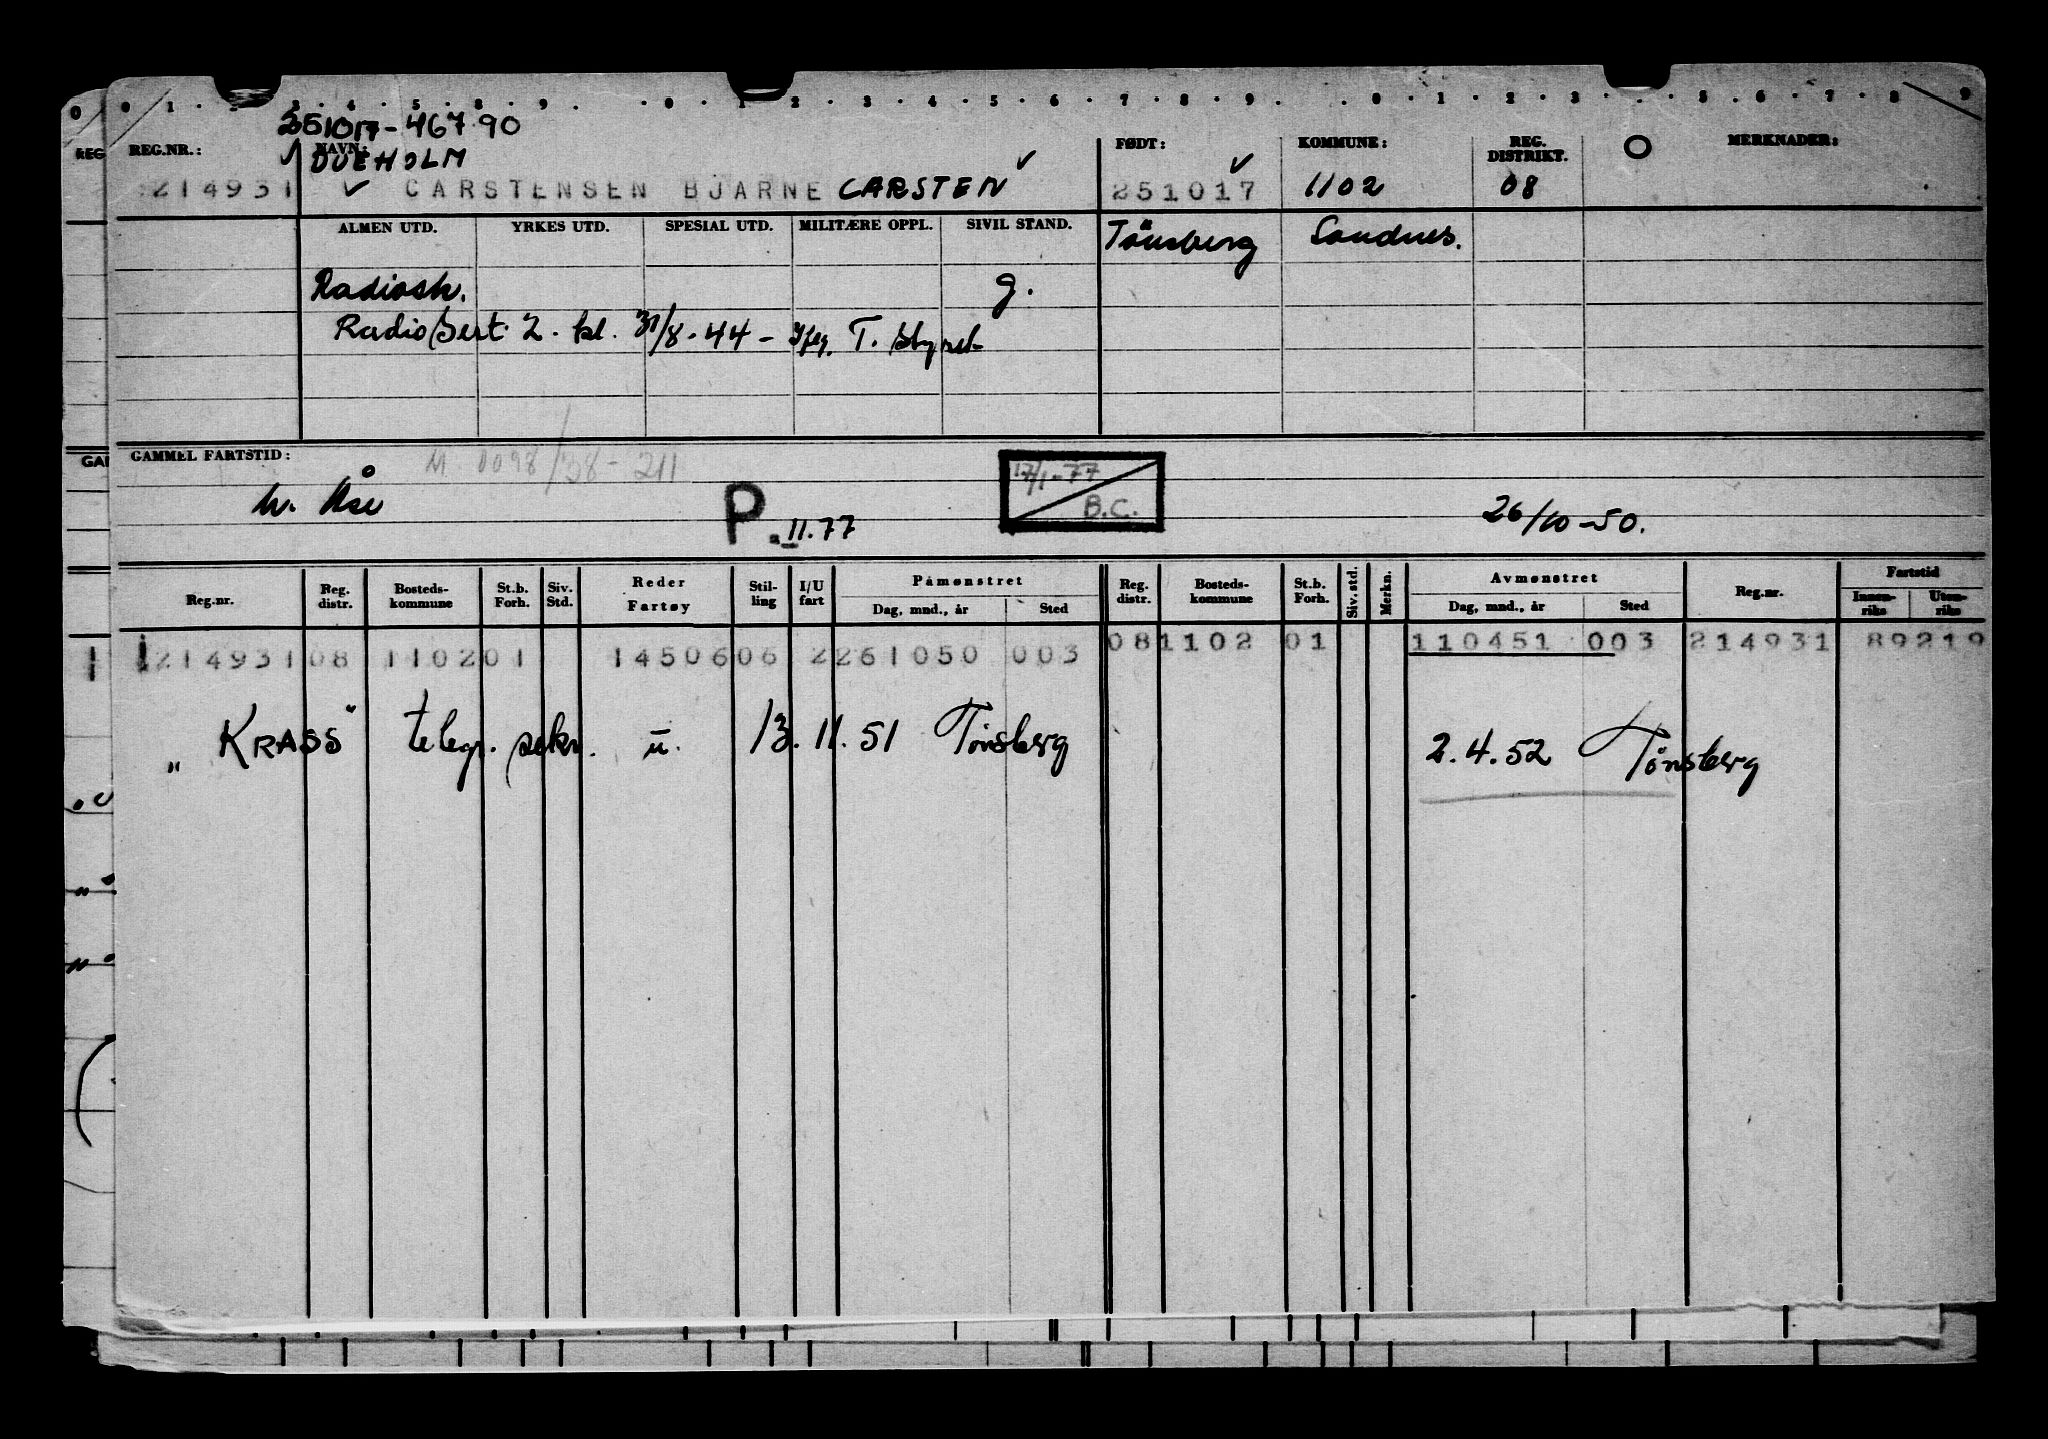 0 1 . . 3 . 4 . 5 . 8 . 9 . . 0 . 1 . 2 . 3 . 4 . 5 . 6 . 7 . 8 . 9 . . 0 . 1 . 2 . 3 . . 5 . 6 . 7 . 8 9
251017-467 90
REG.NR.: NAVN: FØDT: KOMMUNE: REG. DISTRIKT. MERKNADER:
DUEHOLM
214931 CARSTENSEN BJARNE CARSTEN 251017 1102 08
ALMEN UTD. YRKES UTD. SPESIAL UTD. MILITÆRE OPPL. SIVIL STAND. Tönsberg Sandnes.
Radiosk. g.
Radio sert. 2. kl. 31/8-44 - T. styret
GAMMEL FARTSTID: M 0098/38-211
17/1-77
B.C.
h. Åse P. 11.77 26/10-50.
Reg.nr. Reg. distr. Bosteds- kommune St.b. Forh. Siv. Std. Reder Fartøy Stil- ling I/U fart Påmønstret Dag, mnd., år Sted Reg. distr. Bosteds- kommune St.b. Forh. Siv. std. Merkn. Avmønstret Dag, mnd., år Sted Reg.nr. Fartstid Innen- riks Uten- riks
1 214931 08 1102 01 14506 06 2 261050 003 08 1102 01 110451 003 214931 89219
„KRASS" telegr. sekr. u. 13.11.51 Tönsberg 2.4.52 Tønsberg